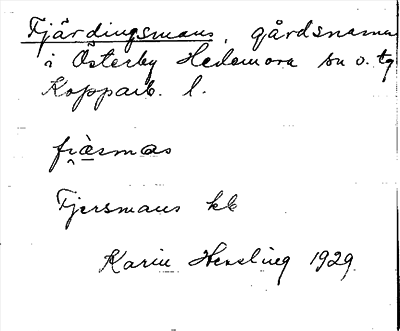 Fjärdingsmans, gårdsnamn
i Österby Hedemora sn o. tg
Kopparb. l.
fiæ̀smas
Fjersmans kb
Karin Hessling 1929.